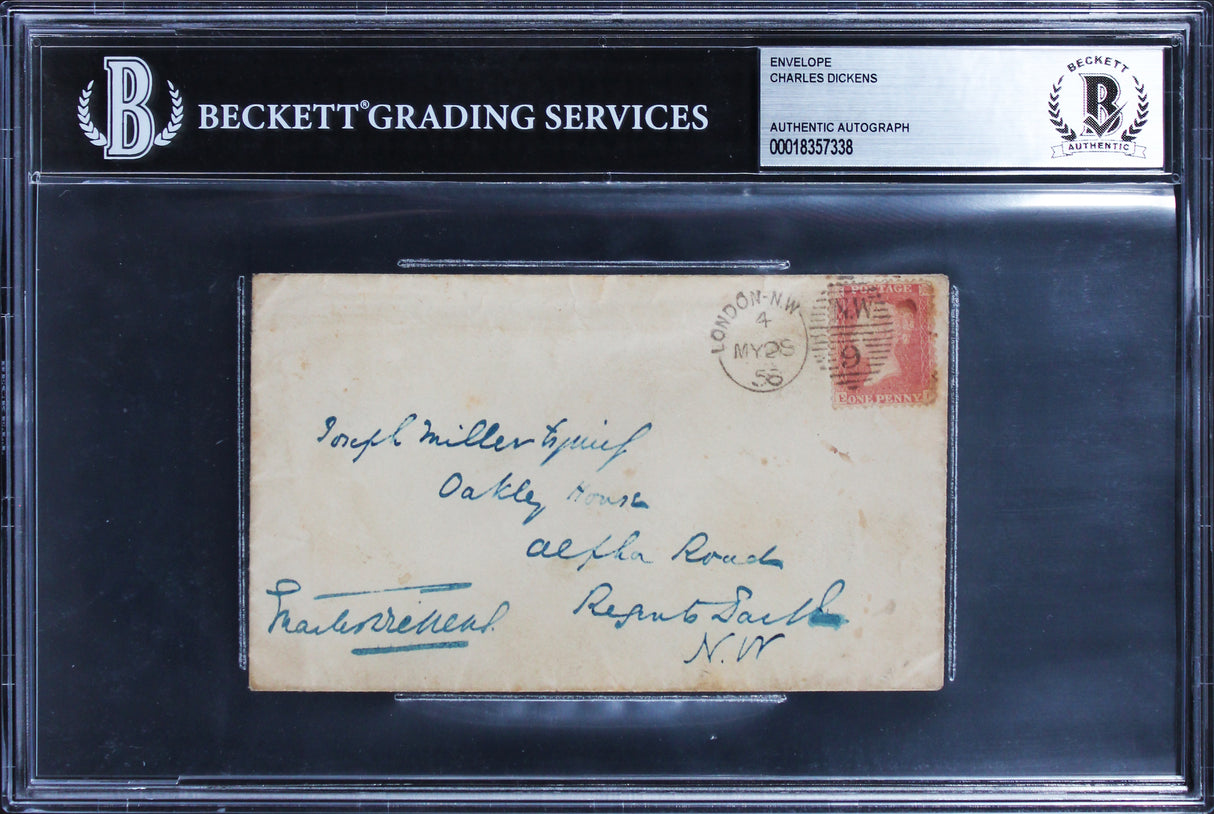 B BECKETT® GRADING SERVICES
ENVELOPE
CHARLES DICKENS
AUTHENTIC AUTOGRAPH
00018357338
BECKETT
B
AUTHENTIC
LONDON-N.W
4
MY 28
POSTAGE
N.W
9
E ONE PENNY
Joseph Miller Esquire
Oakley House
Alpha Road
Regents Park
N.W
Charles Dickens